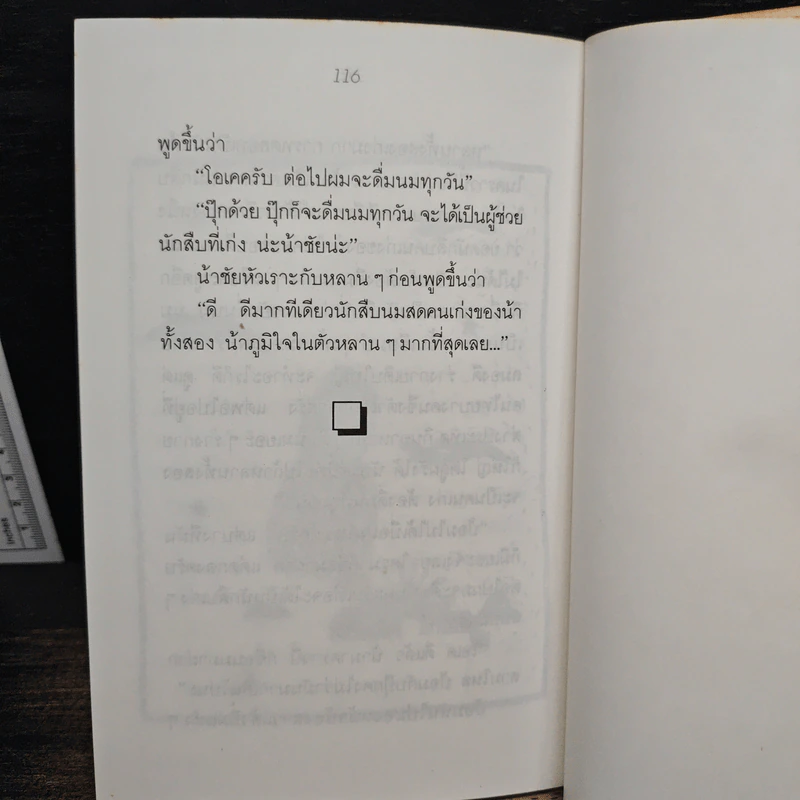 116
พูดขึ้นว่า
“โอเคครับ ต่อไปผมจะดื่มนมทุกวัน”
“ปุ๊กด้วย ปุ๊กก็จะดื่มนมทุกวัน จะได้เป็นผู้ช่วย
นักสืบที่เก่ง น่ะน้าชัยน่ะ”
น้าชัยหัวเราะกับหลาน ๆ ก่อนพูดขึ้นว่า
“ดี ดีมากทีเดียวนักสืบนมสดคนเก่งของน้า
ทั้งสอง น้าภูมิใจในตัวหลาน ๆ มากที่สุดเลย...”
Inches